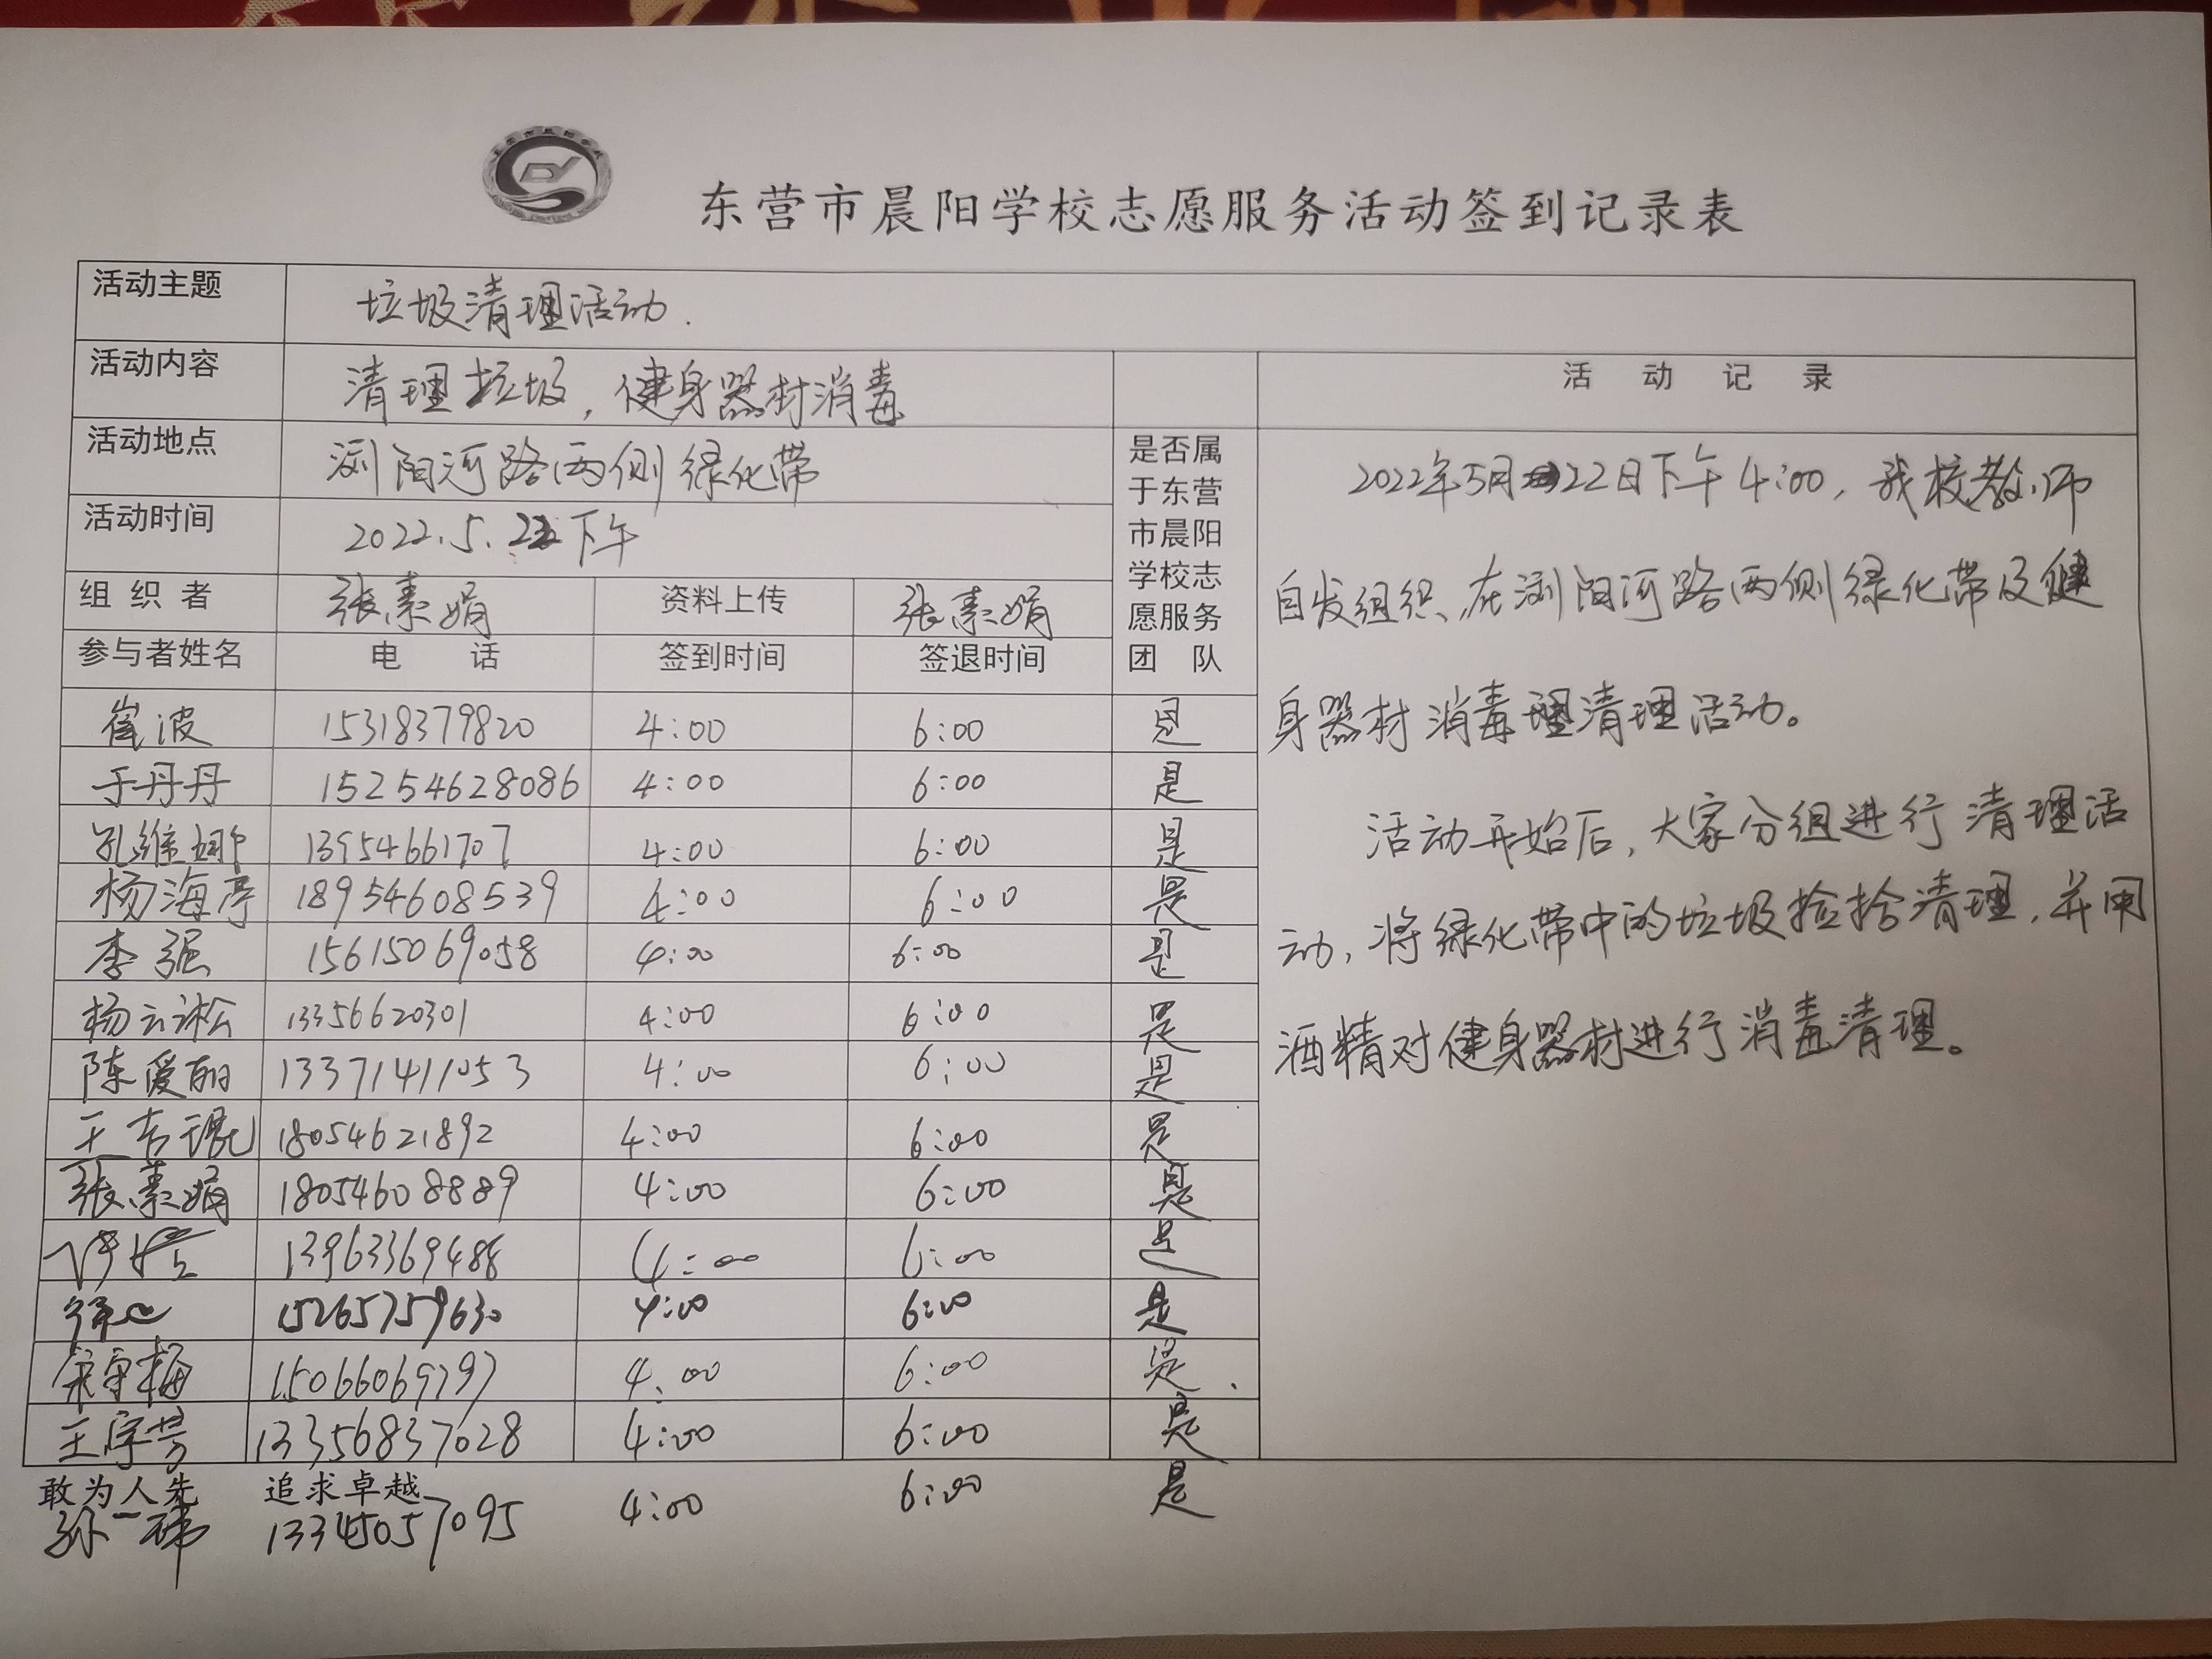 东营市晨阳学校志愿服务活动签到记录表
活动主题 垃圾清理活动.
活动内容 清理垃圾，健身器材消毒
活动地点 浏阳河路两侧绿化带
活动时间 2022.5.22下午
组织者 张素娟 资料上传 张素娟
参与者姓名 电话 签到时间 签退时间
是否属
于东营
市晨阳
学校志
愿服务
团队
崔波 15318379820 4:00 6:00 是
于丹丹 15254628086 4:00 6:00 是
孔维娜 13954661707 4:00 6:00 是
杨海亭 18954608539 4:00 6:00 是
李强 15615069058 4:00 6:00 是
杨云淞 13356620301 4:00 6:00 是
陈爱丽 13371411053 4:00 6:00 是
王吉琨 18054621892 4:00 6:00 是
张素娟 18054608889 4:00 6:00 是
13963369488 4:00 6:00 是
15265759630 4:00 6:00 是
宋守梅 15066069797 4:00 6:00 是
王守芳 13356837028 4:00 6:00 是
敢为人先 追求卓越
孙一玮 13345057095 4:00 6:00 是
活动记录
2022年5月22日下午4:00，我校教师
自发组织、在浏阳河路两侧绿化带及健
身器材消毒理清理活动。
活动开始后，大家分组进行清理活
动，将绿化带中的垃圾捡拾清理，并用
酒精对健身器材进行消毒清理。